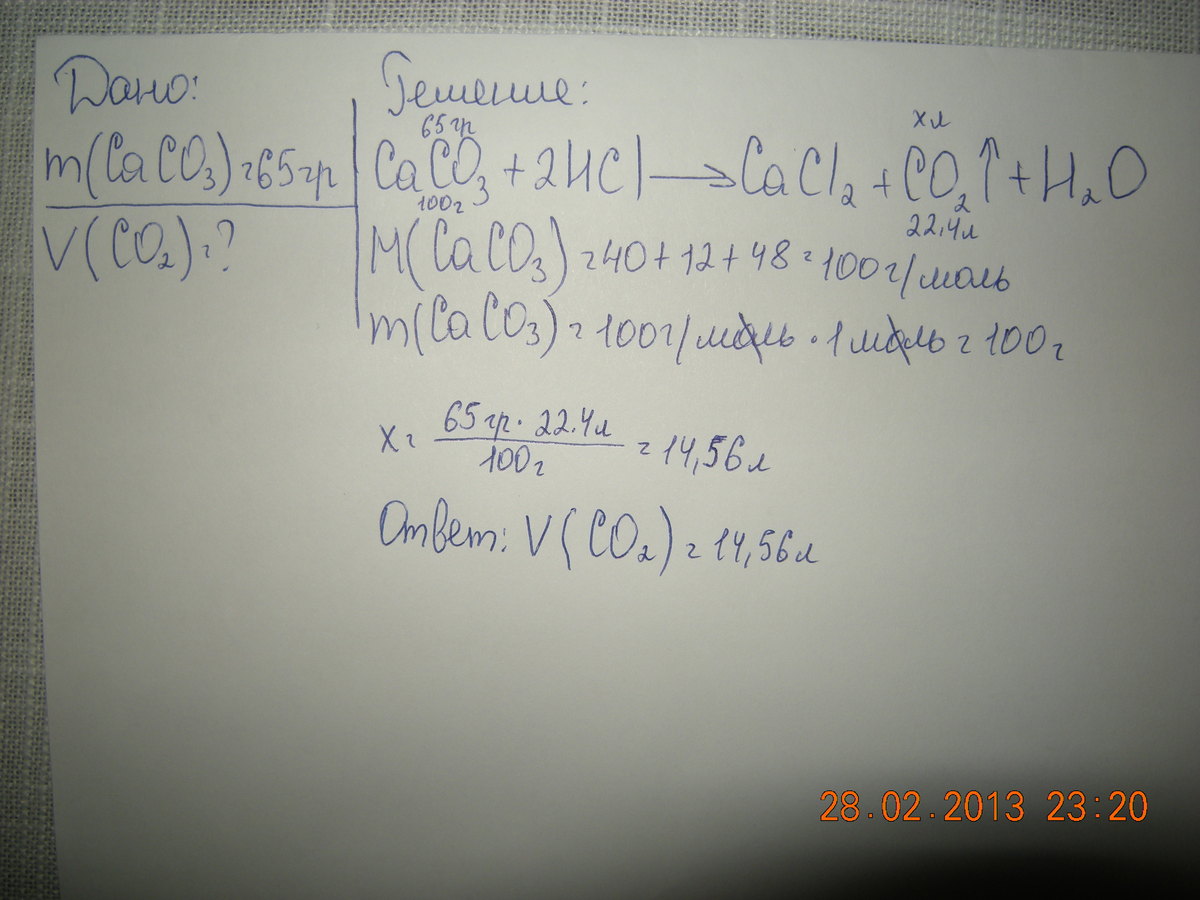 Дано:
m(CaCO₃)=65гр
V(CO₂)=?
Решение:
65гр xл
CaCO₃ + 2HCl → CaCl₂ + CO₂↑ + H₂O
100г 22,4л
M(CaCO₃)=40+12+48=100г/моль
m(CaCO₃)=100г/моль·1моль=100г
x= 65гр· 22.4л / 100г =14,56л
Ответ: V(CO₂)=14,56л
28.02.2013 23:20